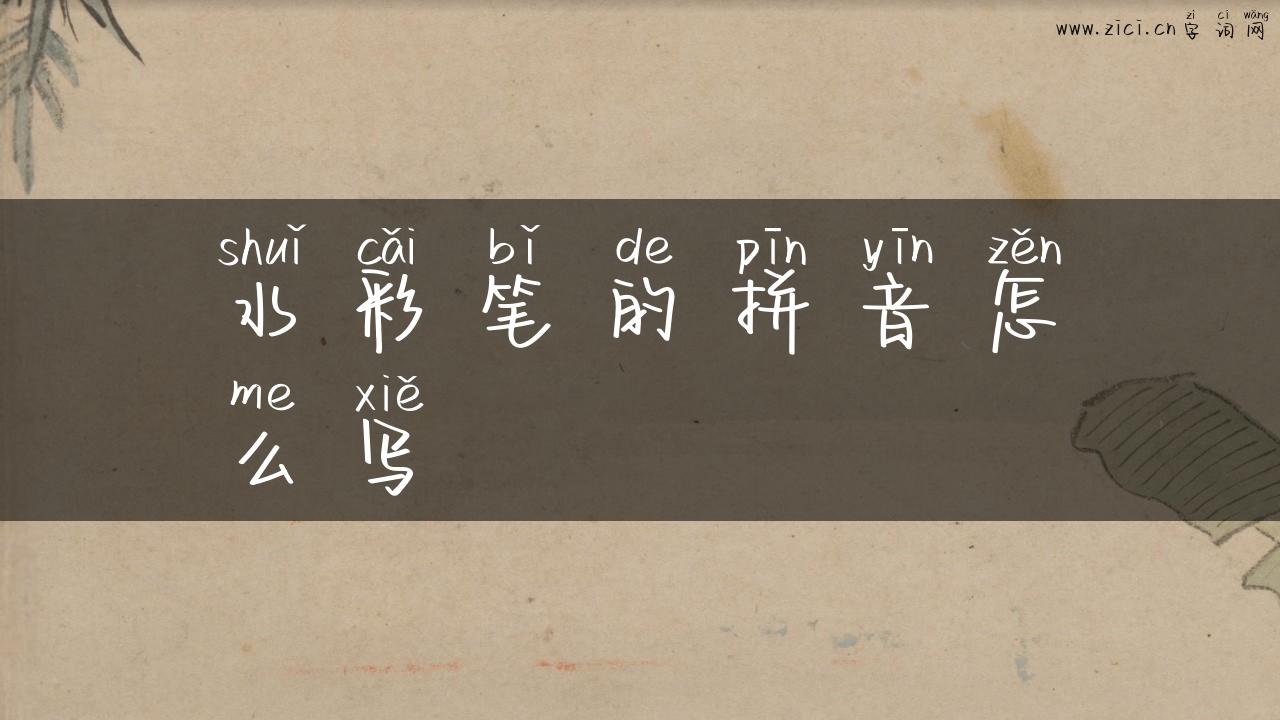 zì cí wǎng
www.zici.cn 字词网
shuǐ cǎi bǐ de pīn yīn zěn
水彩笔的拼音怎
me xiě
么写